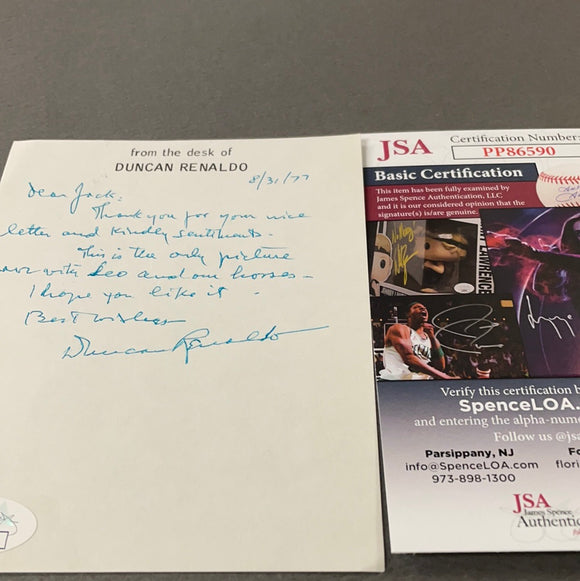 from the desk of
DUNCAN RENALDO
8/31/77
Dear Jack:
Thank you for your nice
letter and kindly sentiments.
This is the only picture
with Leo and our horses -
I hope you like it -
Best wishes
Duncan Renaldo
JSA Certification Number:
PP86590
Basic Certification
This item has been fully examined by
James Spence Authentication, LLC
and it is our considered opinion that the
signature(s) is/are genuine.
LAWRENCE
Verify this certification b
SpenceLOA.
and entering the alpha-nume
Follow us @jsa
Parsippany, NJ
info@SpenceLOA.com
973-898-1300
Fo
flori
JSA
James Spence
Authentic